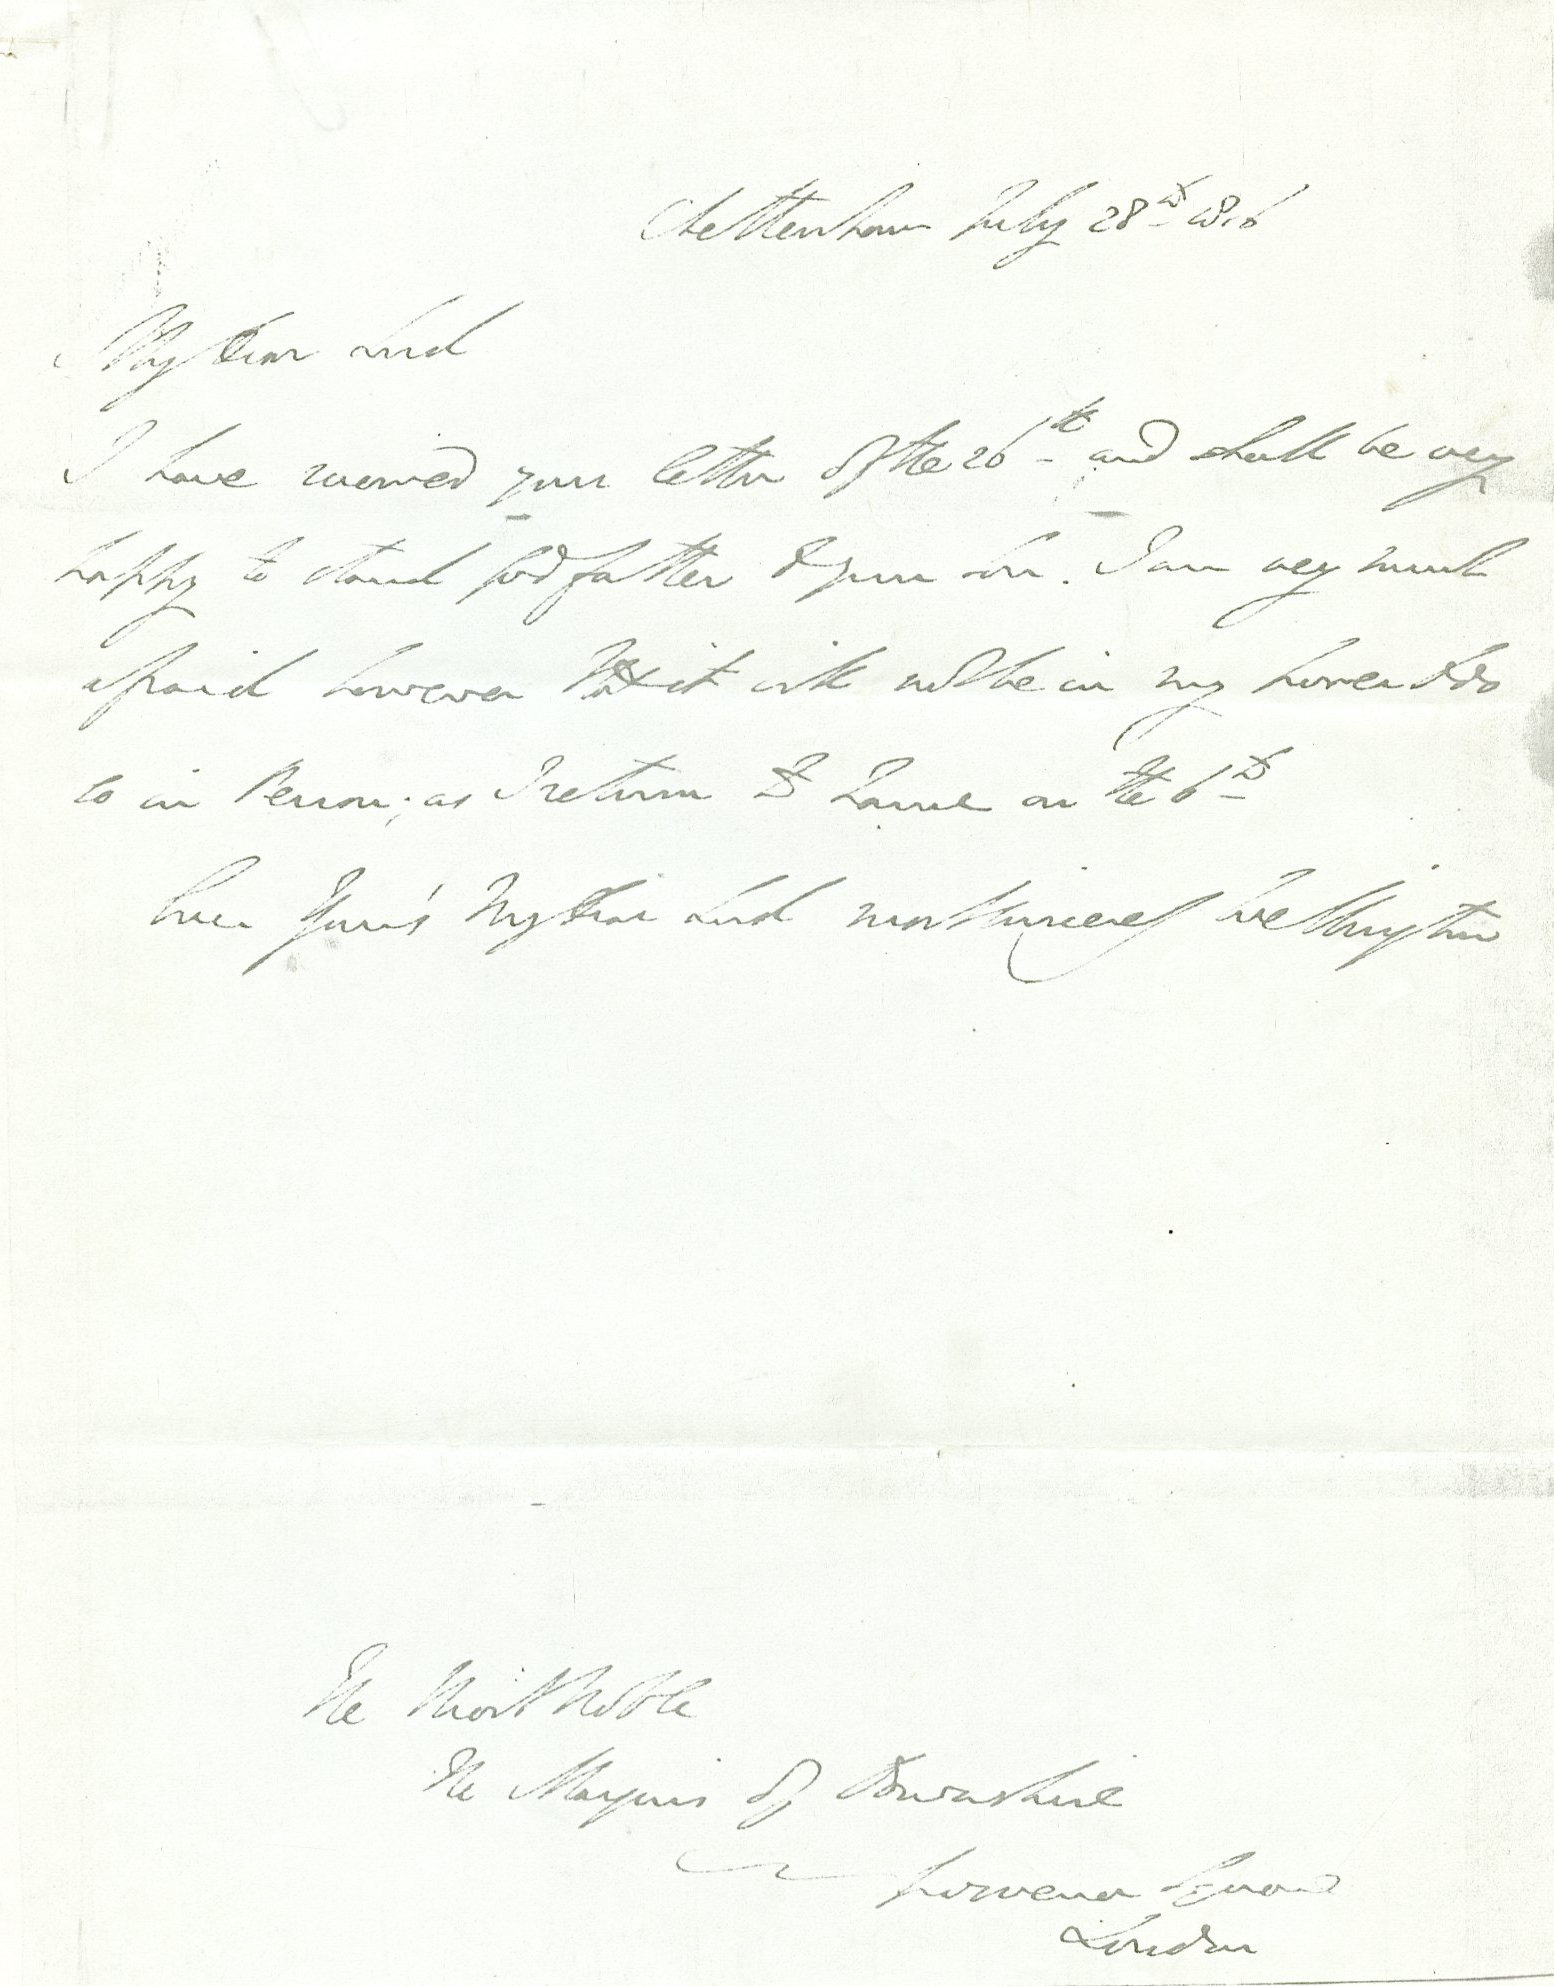 Cheltenham July 28th 1816
My Dear Lord
I have received your letter of the 26th and shall be very
happy to stand Godfather to your Son. I am very much
afraid however that it will not be in my power to do
so in Person; as I return to France on the 6th
Ever Your's My Dear Lord most sincerely Wellington
The Most Noble
The Marquis of Downshire
Grosvenor Square
London